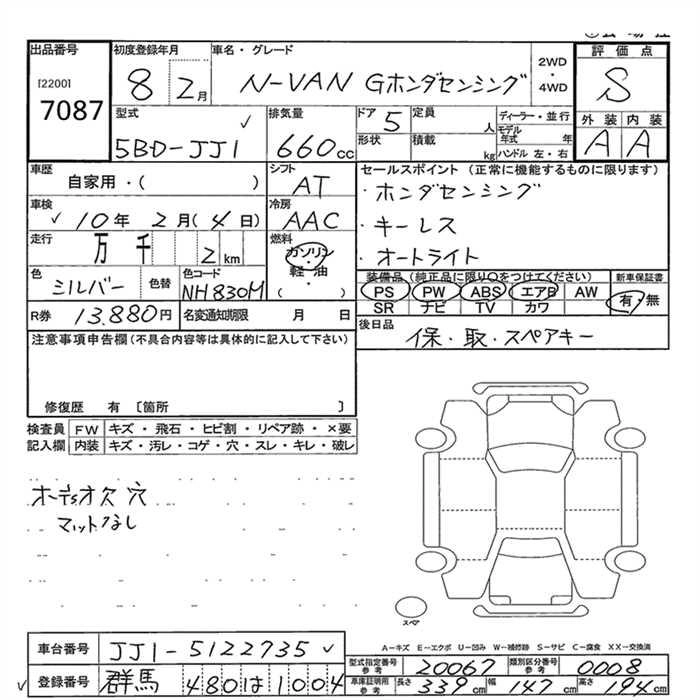 出品番号
[2200]
7087
初度登録年月
8 2月
車名・グレード
N-VAN Gホンダセンシング
2WD
・
4WD
評価点
S
型式
5BD-JJ1
排気量
660cc
ドア 5
定員 人
形状
積載 kg
ディーラー・並行
モデル年式 年
ハンドル 左・右
外装 内装
A A
車歴
自家用・( )
シフト
AT
セールスポイント (正常に機能するものに限ります)
・ホンダセンシング
・キーレス
・オートライト
車検
10年 2月(4日)
冷房
AAC
走行
万 千 2km
燃料
ガソリン
・
軽・油
( )
色
シルバー
色替
色コード
NH830M
装備品(純正品に限り〇をつけてください)
PS PW ABS エアB AW
SR ナビ TV カワ
新車保証書
有・無
R券 13,880円
名変通知期限 月 日
後日品
保・取・スペアキー
注意事項申告欄(不具合内容等は具体的に記入して下さい)
修復歴 有 〔箇所 〕
検査員 FW キズ・飛石・ヒビ割・リペア跡・×要
記入欄 内装 キズ・汚レ・コゲ・穴・スレ・キレ・破レ
オーディオ欠 穴
マットなし
スペア
A－キズ E－エクボ U－凹み W－補修跡 S－サビ C－腐食 XX－交換済
車台番号 JJ1-5122735
登録番号 群馬 480 は 1004
型式指定番号 参考 20067
類別区分番号 参考 0008
車庫証明用 参考 長さ 339cm 幅 147cm 高さ 194cm